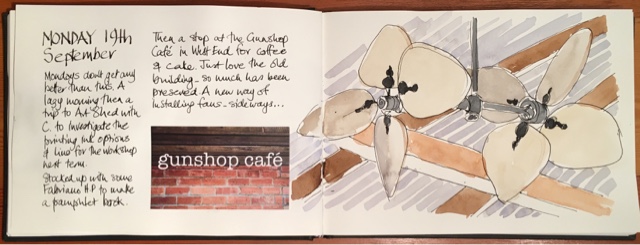 MONDAY 19th
September
Mondays don't get any
better than this. A
lazy morning then a
trip to Art Shed with
C. to investigate the
printing ink options
& lino for the workshop
next term.
Stocked up with some
Fabriano H.P to make
a pamphlet book.
Then a stop at the Gunshop
Café in West End for coffee
& cake. Just love the old
building - so much has been
preserved. A new way of
installing fans - sideways...
gunshop café